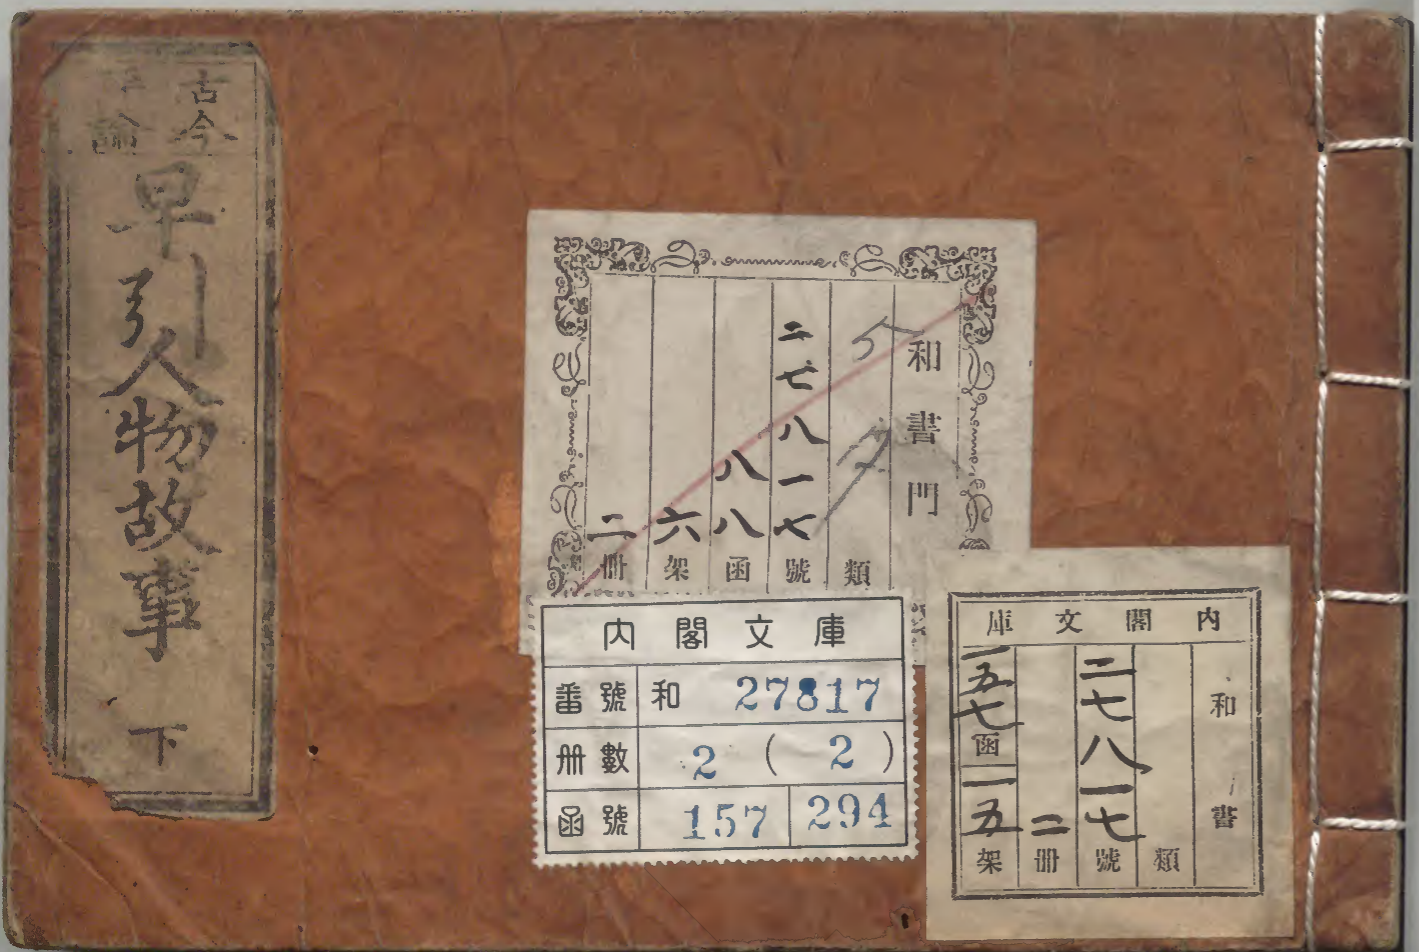 古今
論
早引人物故事 下
和書門
類
二七八一七號
八八函
六架
二冊
內閣文庫
番號 和 27817
冊數 2 ( 2 )
函號 157 294
內閣文庫
和書
類
二七八一七號
二冊
一五七函
一五架